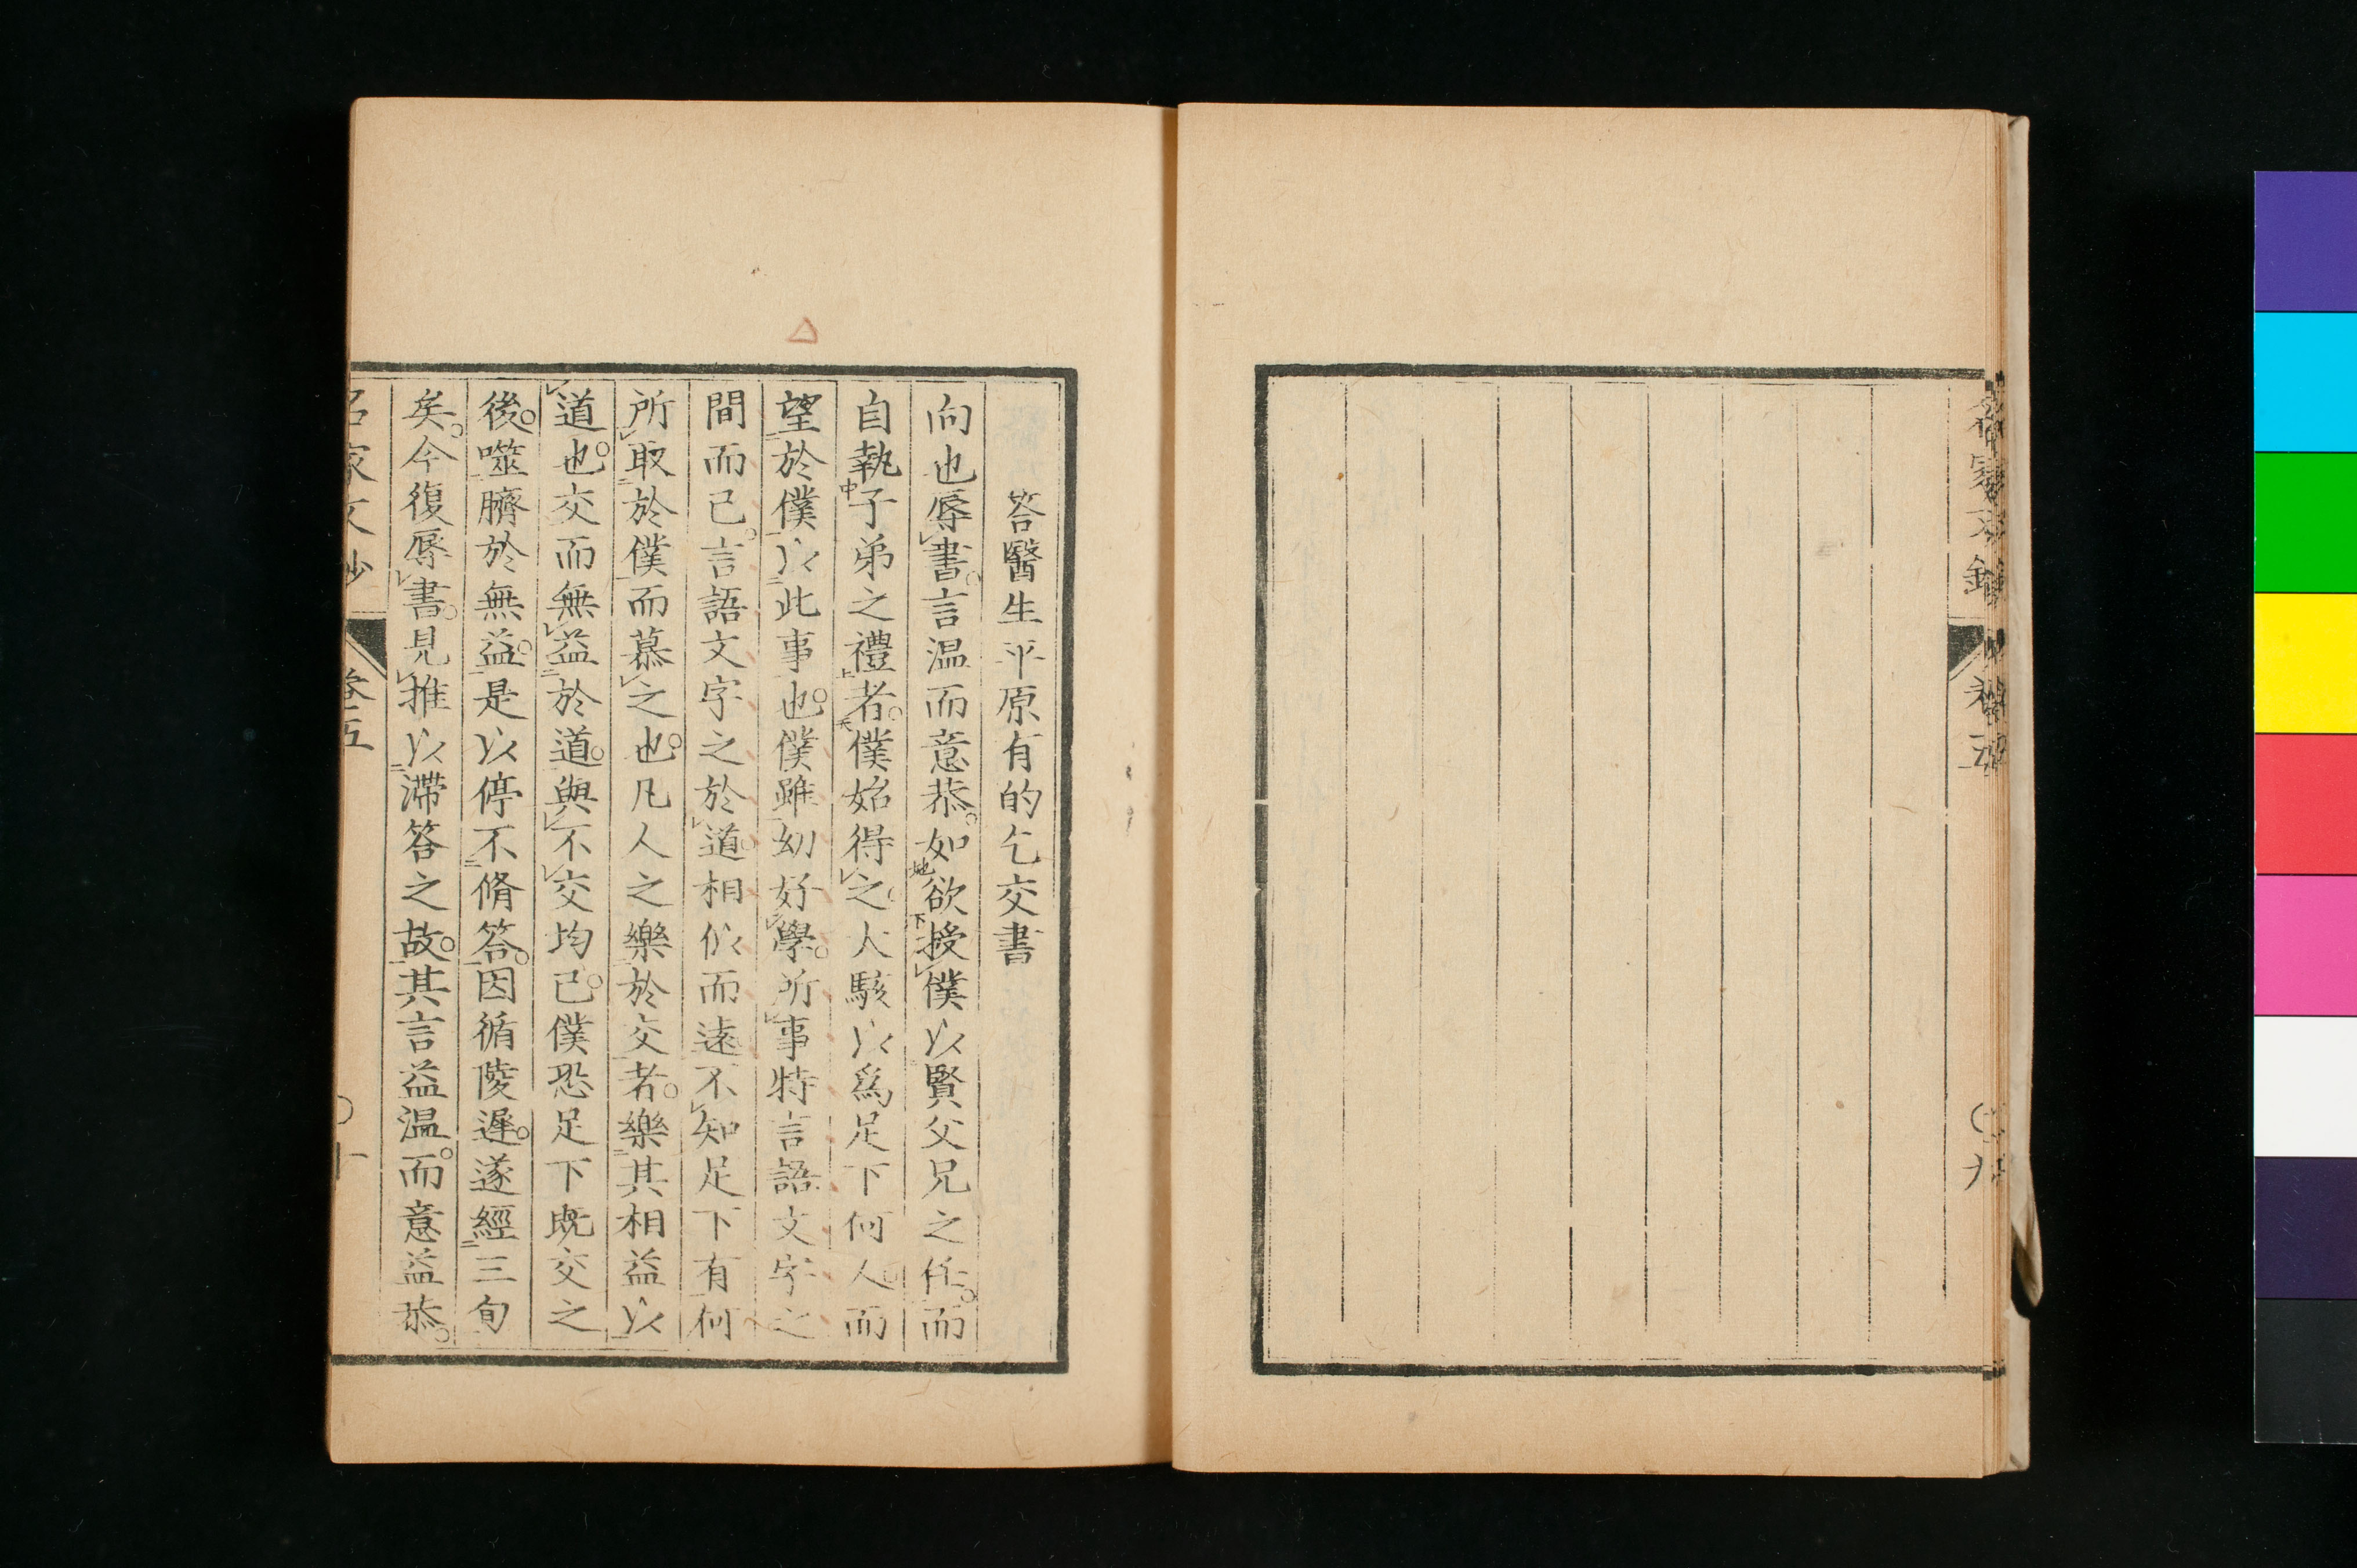 答醫生平原有的乞交書
向也辱㆑書。言温而意恭。如㆞欲㆘授㆑僕以賢父兄之任。而
自執㆗子弟之禮㆖者。㆝僕始得㆑之。大駭以爲足下何人。而
望㆓於僕㆒以㆓此事㆒也。僕雖㆓幼好㆑學。所㆑事特言語文字之
間而已。言語文字之於㆑道。相似而遠。不㆑知足下有㆘何
所㆑取㆓於僕㆒而慕㆑之也。凡人之樂㆓於交㆒者。樂㆓其相益㆒以
㆑道也。交而無㆑益㆓於道㆒。與㆑不㆑交均已。僕恐足下既交之
後。噬㆓臍於無㆒益。是以停不㆓脩答㆒。因循陵遲。遂經㆓三旬㆒
矣。今復辱㆑書。見㆑推以㆓滯答之故㆒。其言益温。而意益恭。
名家文抄
卷五
〇十